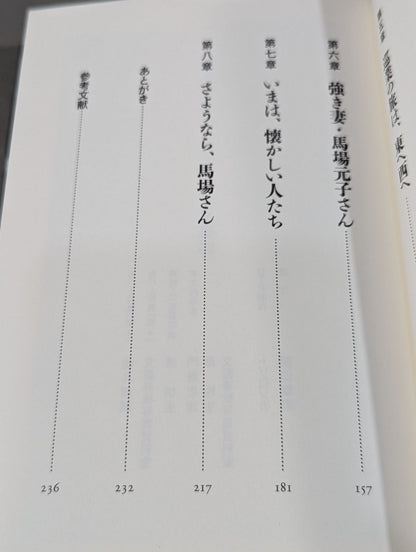 第六章 強き妻・馬場元子さん 157
第七章 いまは、懐かしい人たち 181
第八章 さようなら、馬場さん 217
あとがき 232
参考文献 236